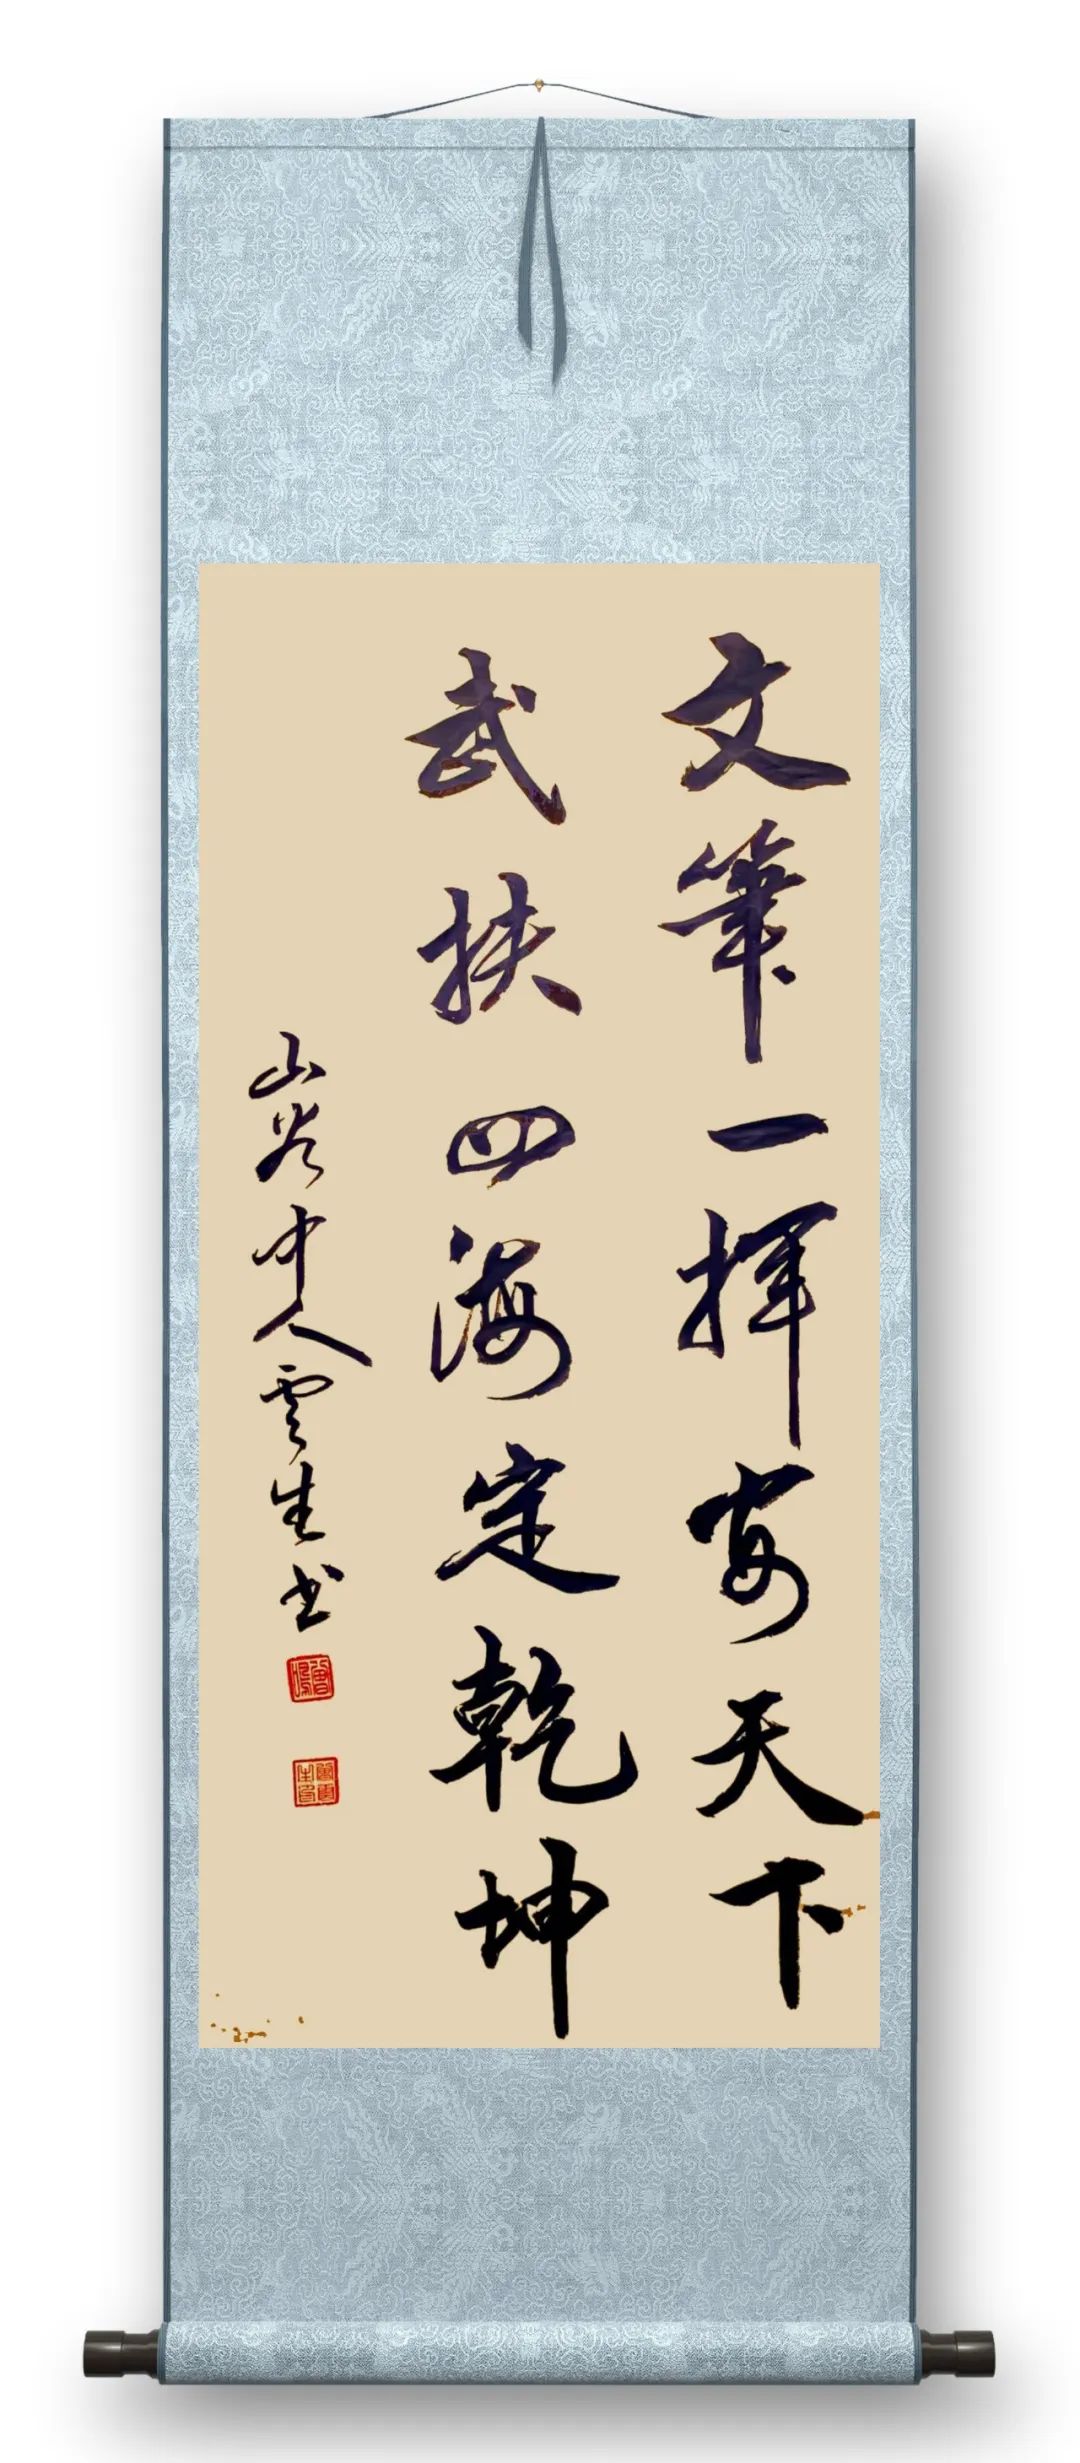 文筆一揮安天下
武扶四海定乾坤
山谷中人雲生书